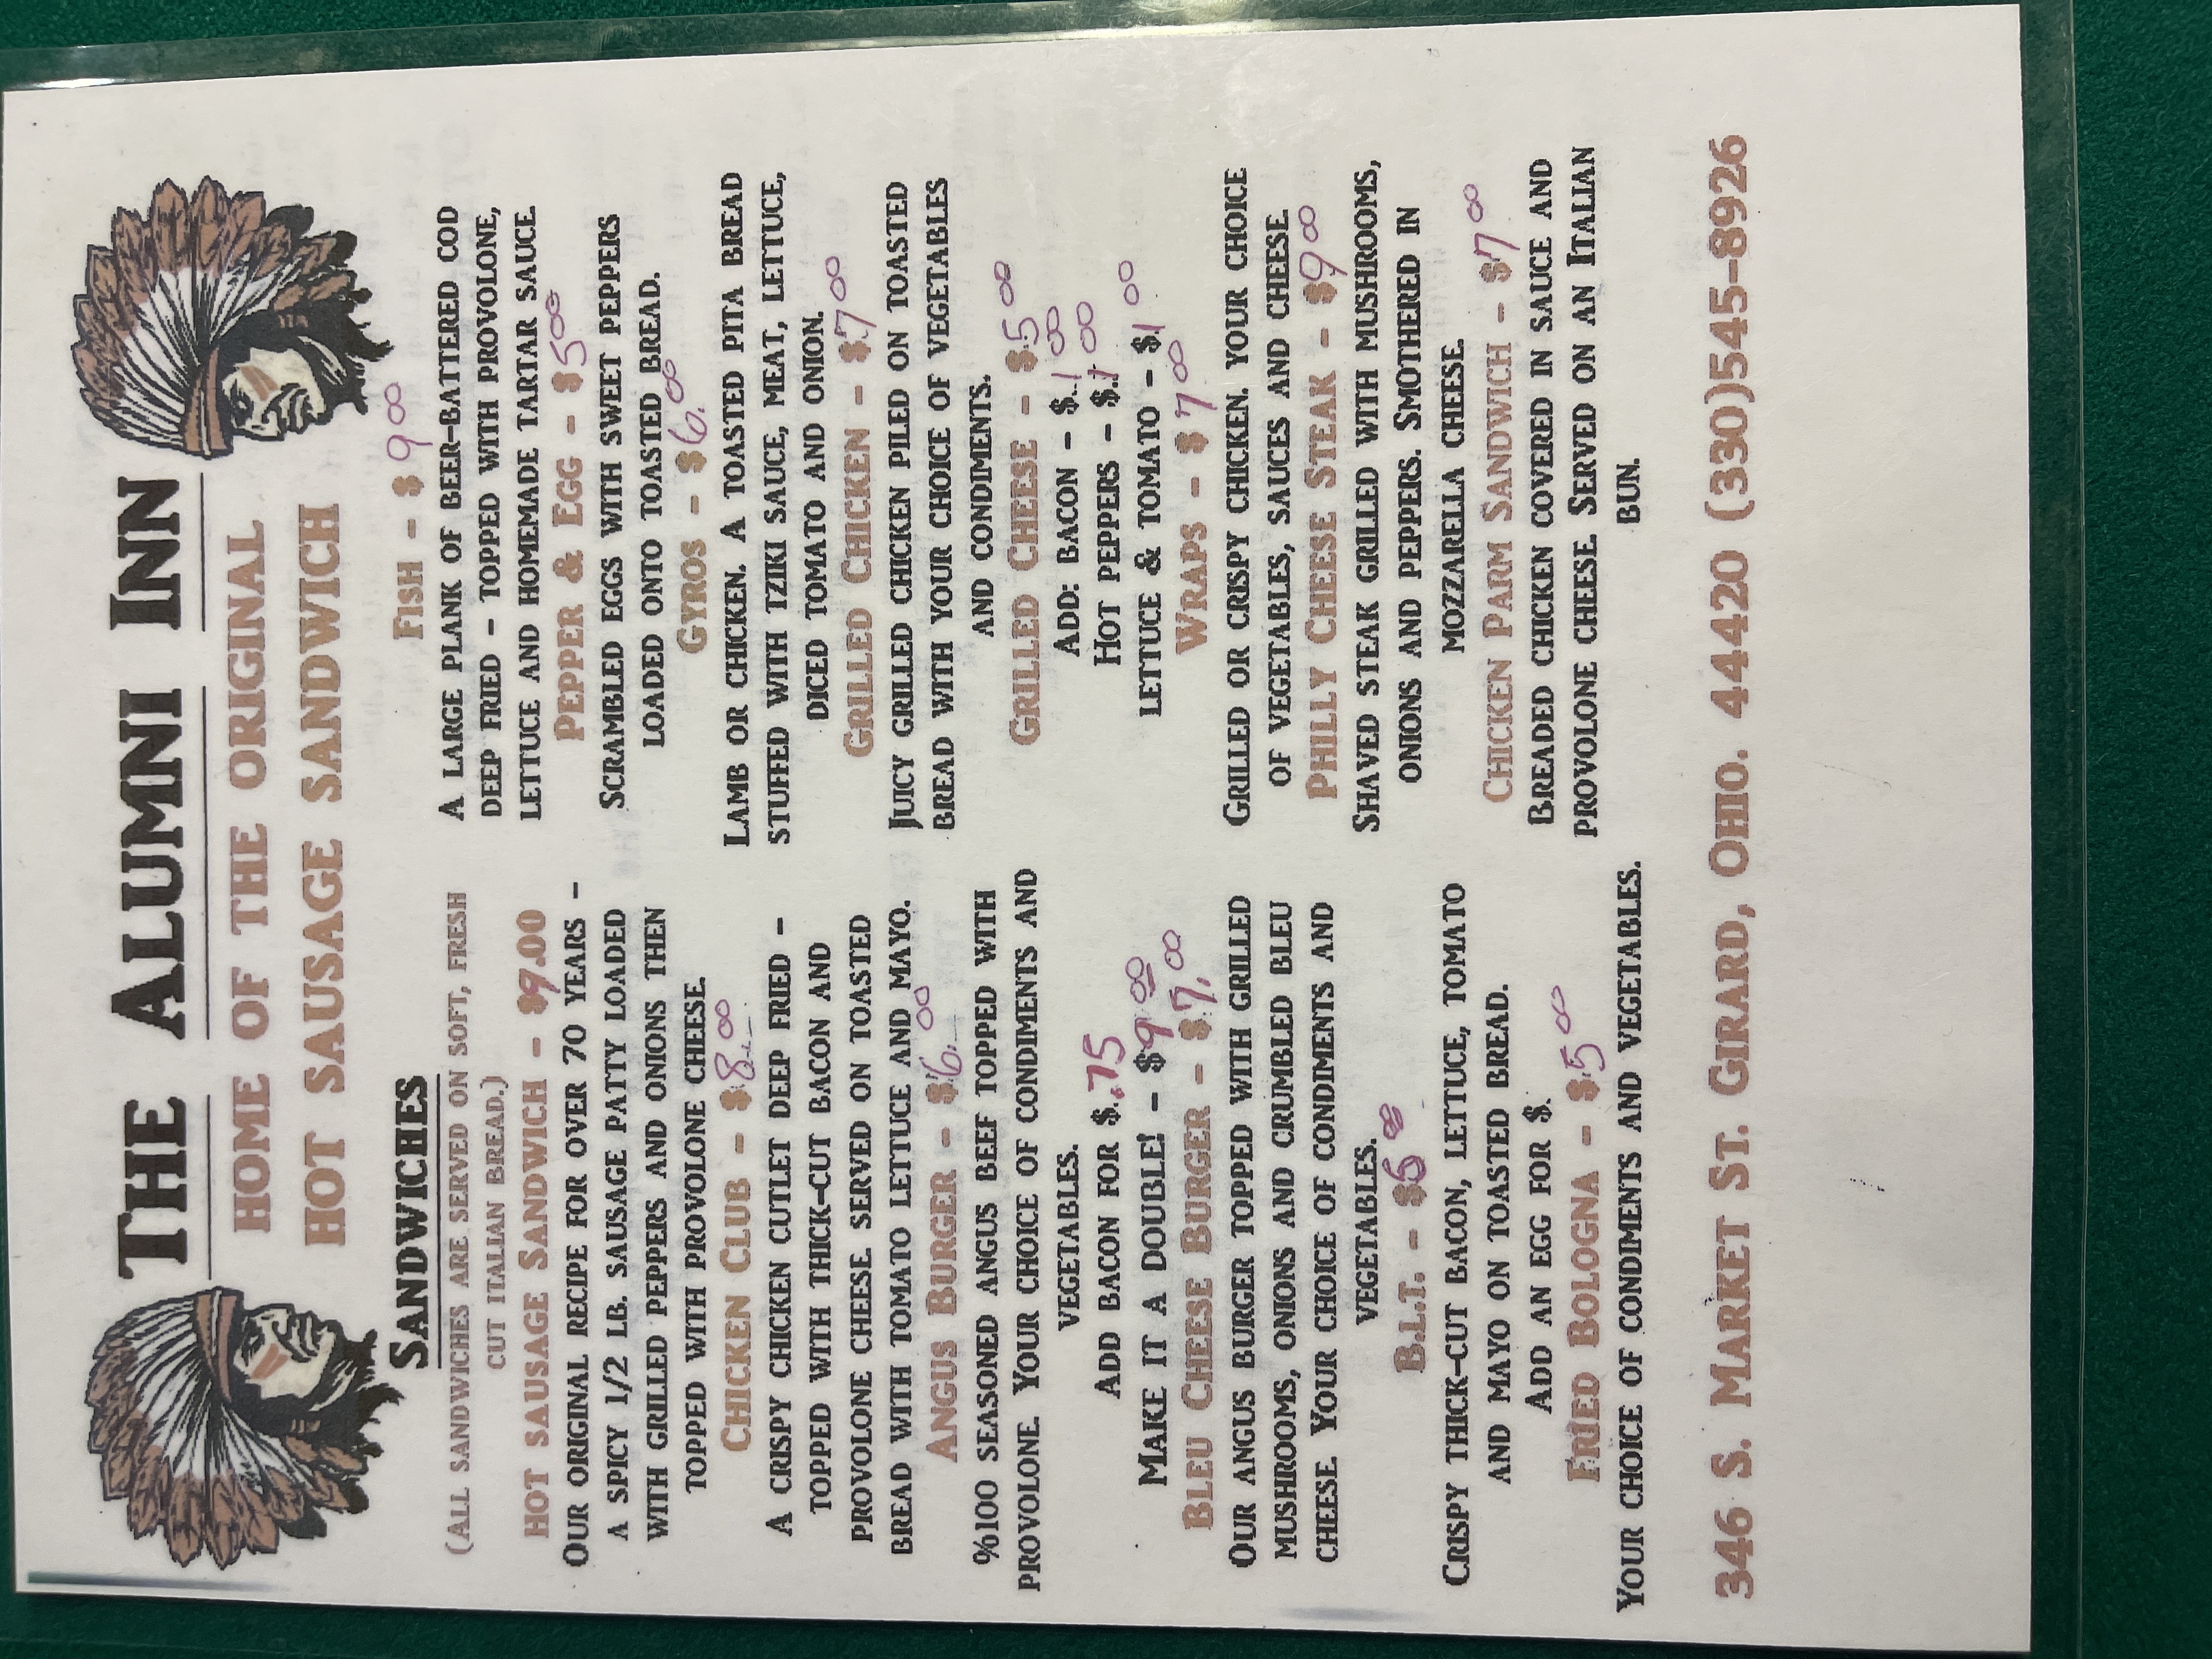 THE ALUMNI INN
HOME OF THE ORIGINAL
HOT SAUSAGE SANDWICH
SANDWICHES
(ALL SANDWICHES ARE SERVED ON SOFT, FRESH
CUT ITALIAN BREAD.)
HOT SAUSAGE SANDWICH - $9.00
OUR ORIGINAL RECIPE FOR OVER 70 YEARS -
A SPICY 1/2 LB. SAUSAGE PATTY LOADED
WITH GRILLED PEPPERS AND ONIONS THEN
TOPPED WITH PROVOLONE CHEESE.
CHICKEN CLUB - $8.00
A CRISPY CHICKEN CUTLET DEEP FRIED -
TOPPED WITH THICK-CUT BACON AND
PROVOLONE CHEESE. SERVED ON TOASTED
BREAD WITH TOMATO LETTUCE AND MAYO.
ANGUS BURGER - $6.00
%100 SEASONED ANGUS BEEF TOPPED WITH
PROVOLONE. YOUR CHOICE OF CONDIMENTS AND
VEGETABLES.
ADD BACON FOR $.75
MAKE IT A DOUBLE! - $9 00
BLEU CHEESE BURGER - $7.00
OUR ANGUS BURGER TOPPED WITH GRILLED
MUSHROOMS, ONIONS AND CRUMBLED BLEU
CHEESE. YOUR CHOICE OF CONDIMENTS AND
VEGETABLES.
B.L.T. - $
CRISPY THICK-CUT BACON, LETTUCE, TOMATO
AND MAYO ON TOASTED BREAD.
ADD AN EGG FOR $.
FRIED BOLOGNA - $5 00
YOUR CHOICE OF CONDIMENTS AND VEGETABLES.
FISH - $ 9 00
A LARGE PLANK OF BEER-BATTERED COD
DEEP FRIED - TOPPED WITH PROVOLONE,
LETTUCE AND HOMEMADE TARTAR SAUCE.
PEPPER & EGG - $5 00
SCRAMBLED EGGS WITH SWEET PEPPERS
LOADED ONTO TOASTED BREAD.
GYROS - $ 6.00
LAMB OR CHICKEN. A TOASTED PITA BREAD
STUFFED WITH TZIKI SAUCE, MEAT, LETTUCE,
DICED TOMATO AND ONION.
GRILLED CHICKEN - $7 00
JUICY GRILLED CHICKEN PILED ON TOASTED
BREAD WITH YOUR CHOICE OF VEGETABLES
AND CONDIMENTS.
GRILLED CHEESE - $5 00
ADD: BACON - $.1 00
HOT PEPPERS - $.1 00
LETTUCE & TOMATO - $.1 00
WRAPS - $ 7 00
GRILLED OR CRISPY CHICKEN. YOUR CHOICE
OF VEGETABLES, SAUCES AND CHEESE.
PHILLY CHEESE STEAK - $9 00
SHAVED STEAK GRILLED WITH MUSHROOMS,
ONIONS AND PEPPERS. SMOTHERED IN
MOZZARELLA CHEESE.
CHICKEN PARM SANDWICH - $7 00
BREADED CHICKEN COVERED IN SAUCE AND
PROVOLONE CHEESE. SERVED ON AN ITALIAN
BUN.
346 S. MARKET ST. GIRARD, OHIO. 44420 (330)545-8926